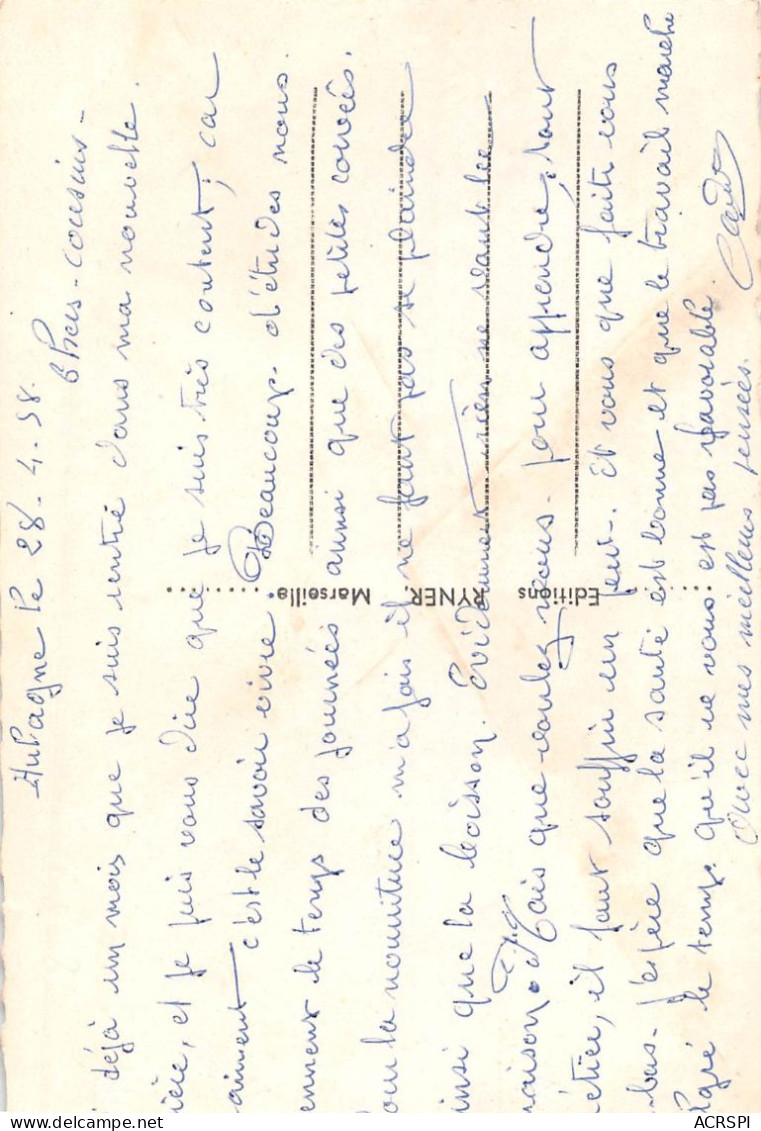 Aubagne le 28-4-58.
Chers-Cousins-
déjà un mois que je suis rentré dans ma nouvelle.
ière, et je puis vous dire que je suis très content, car
aiment c'est le savoir vivre Beaucoup. d'études nous.
ennent le temps des journées aunsi que des petites corvées.
our la nourriture m'a fois il ne faut pas se plaindre
insi que la boisson. Evidamment rien ne vaut les
maison. Mais que voulez vous. pour apprendre, tout
étier, il faut souffrir un peut. Et vous que faite vous
-bas- J'espère que la santé est bonne et que le travail marche
lgré le temps qu'il ne vous est pas favorable.
Avec mes meilleurs pensées.
Editions RYNER, Marseille
ACRSPI